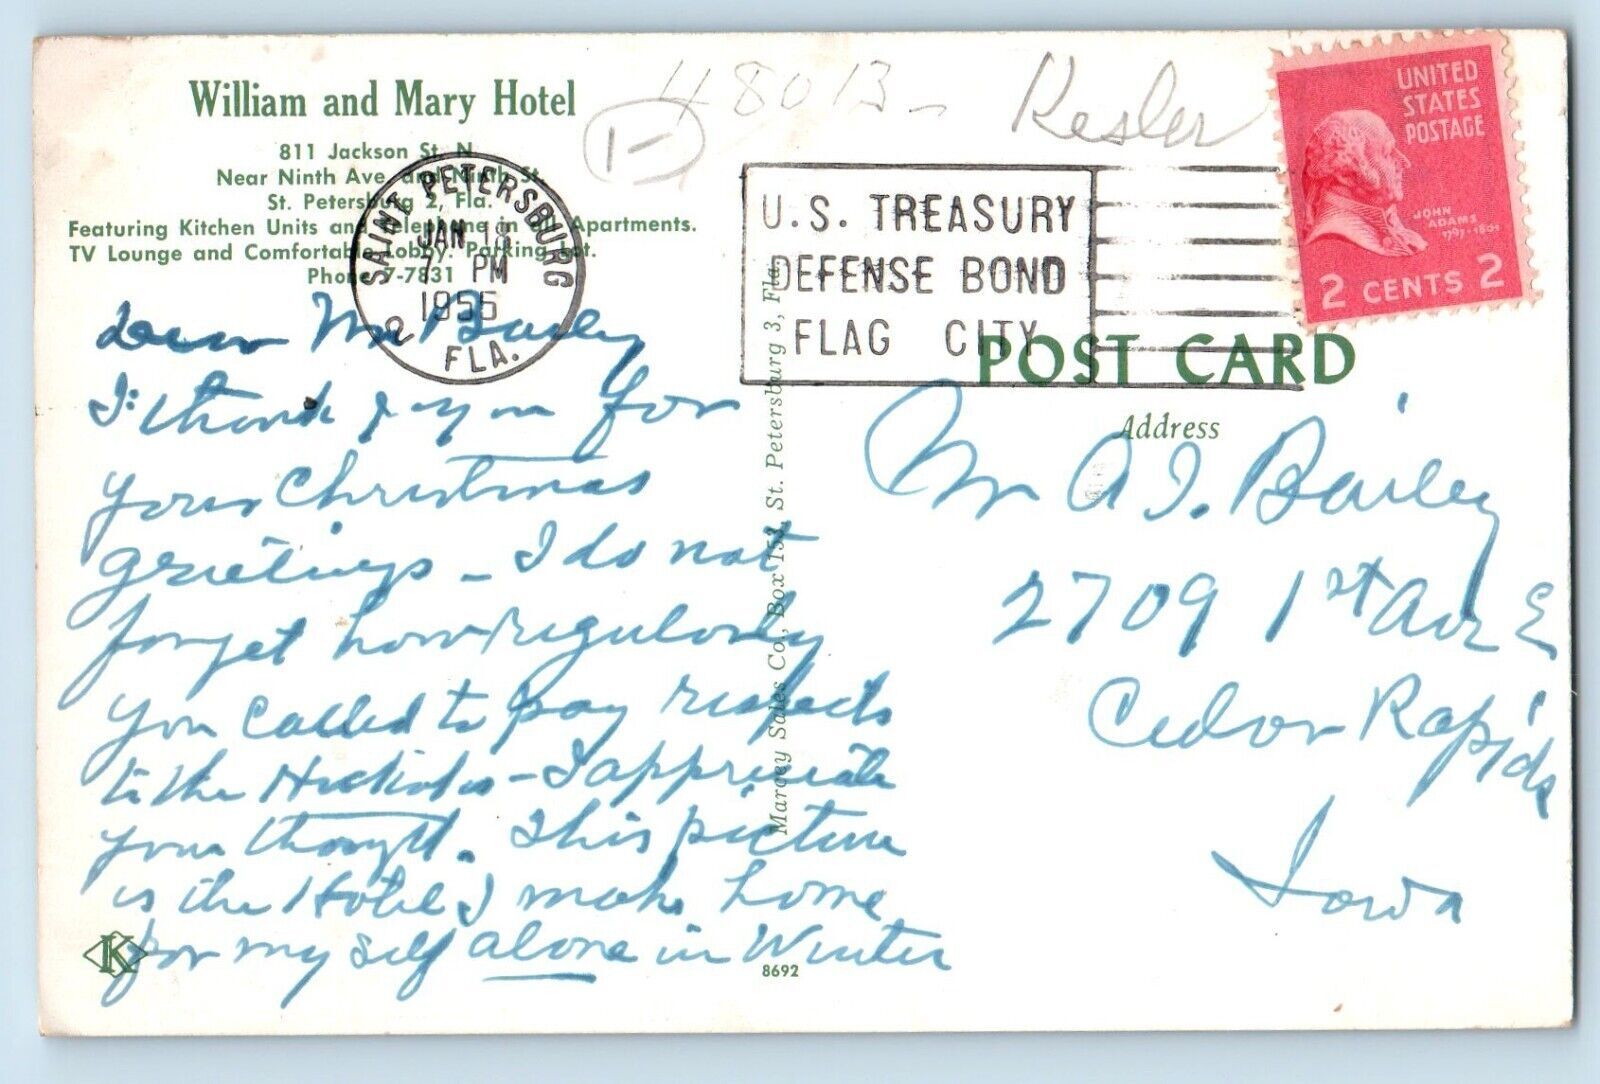 William and Mary Hotel
811 Jackson St. N.
Near Ninth Ave. and Ninth St.
St. Petersburg 2, Fla.
Featuring Kitchen Units and Telephone in all Apartments.
TV Lounge and Comfortable Lobby. Parking Lot.
Phone 7-7831
48013-
1-
Kesler
SAINT PETERSBURG
JAN 18
7 PM
1955
2 FLA.
U.S. TREASURY
DEFENSE BOND
FLAG CITY
UNITED
STATES
POSTAGE
JOHN
ADAMS
1797-1801
2 CENTS 2
POST CARD
Address
Dear Mr Bailey
I thank you for
your Christmas
greetings - I do not
forget how regularly
you called to pay respects
to the - I appreciate
your thought. This picture
is the Hotel I make home
for my self alone in Winter
Mr A I. Bailey
2709 1st Ave E
Cedar Rapids
Iowa
Marcey Sales Co., Box 153, St. Petersburg 3, Fla.
K
8692